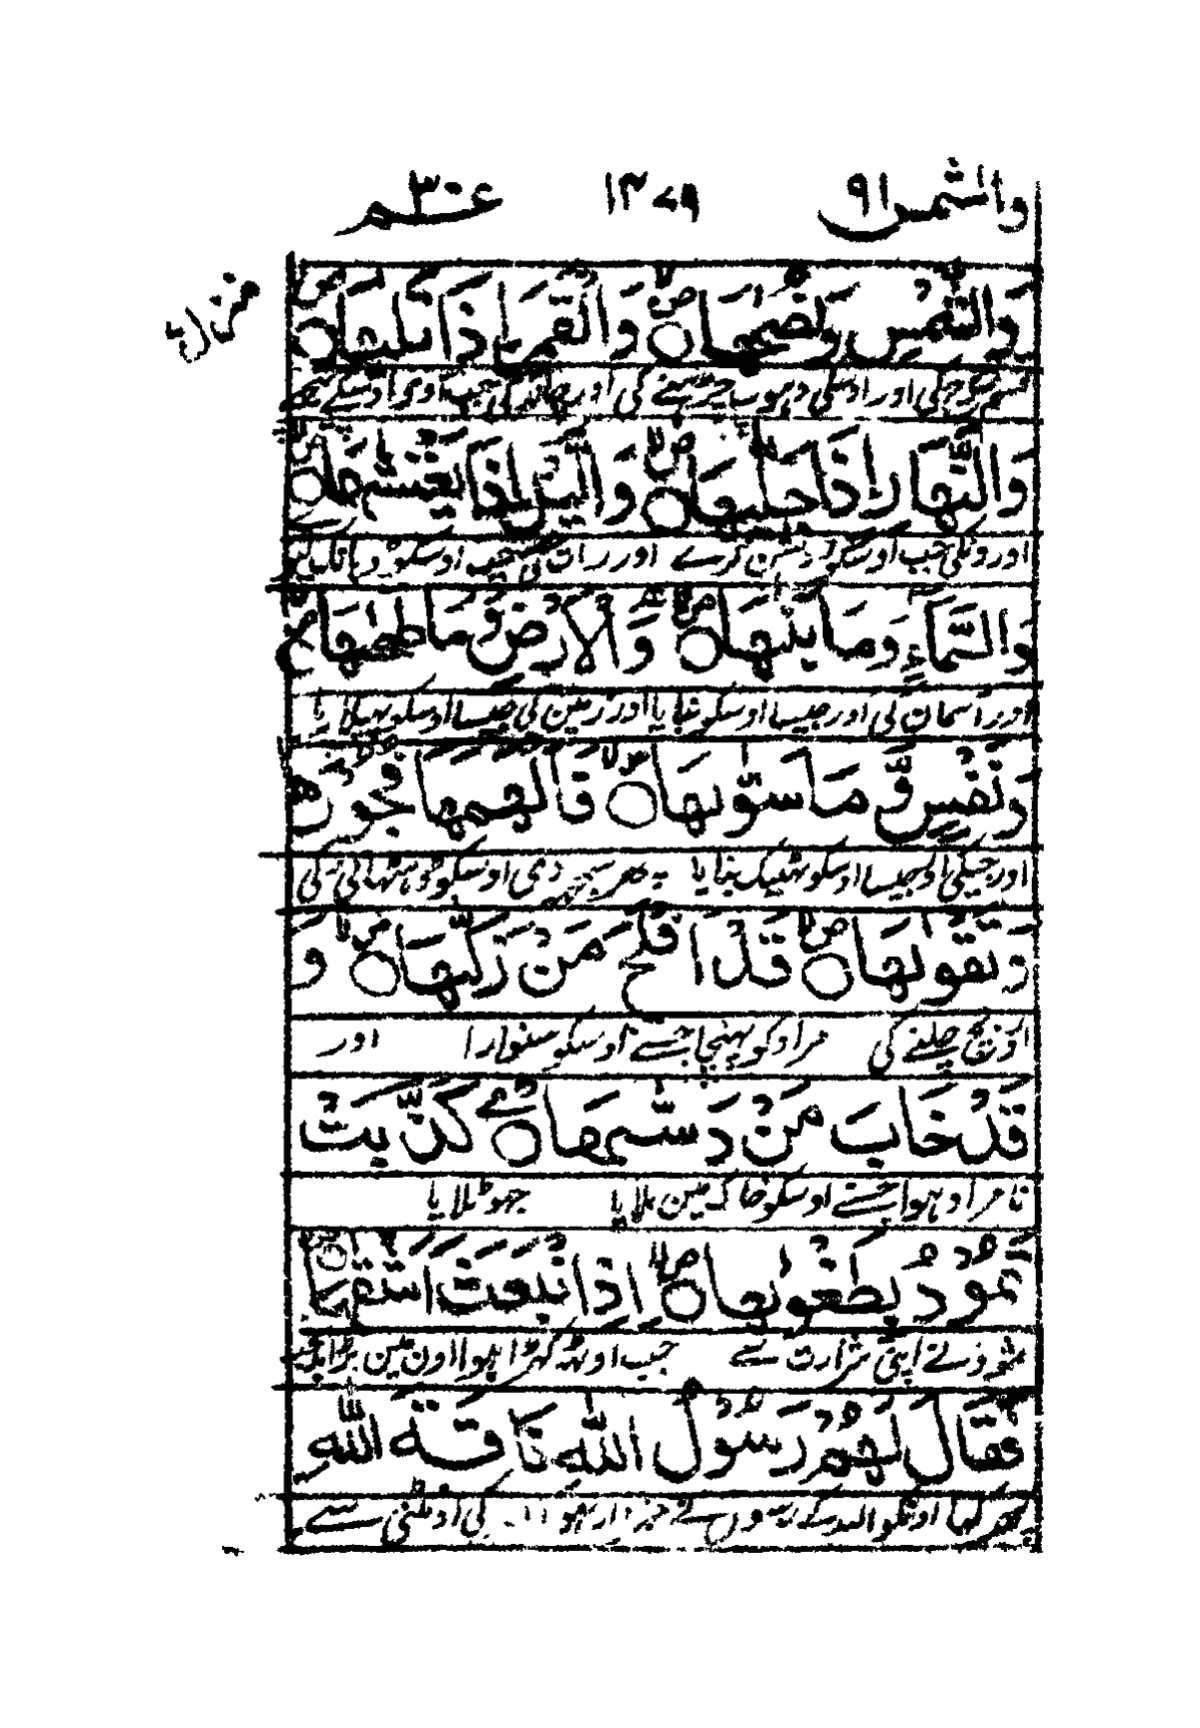 والشمس ٩١ ١٣٧٩ عم ٣٠
منزل
وَالشَّمْسِ وَضُحٰىهَا ۝ وَالْقَمَرِ اِذَا تَلٰىهَا ۝
اور چاند کی جب آوی اوسکے
وَالنَّهَارِ اِذَا جَلّٰىهَا ۝ وَالَّيْلِ اِذَا يَغْشٰىهَا ۝
اور دنکی جب اوسکو روشن کرے اور رات کی جب اوسکو
وَالسَّمَآءِ وَمَا بَنٰىهَا ۝ وَالْاَرْضِ وَمَا طَحٰىهَا
اور آسمان کی اور جیسا اوسکو بنایا اور زمین کی جیسا اوسکو پھیلایا
وَنَفْسٍ وَّمَا سَوّٰىهَا ۝ فَاَلْهَمَهَا فُجُوْرَهَا
اور جیکی اور جیسا اوسکو ٹھیک بنایا پھر سمجھ دی اوسکو ڈھٹائی کی
وَتَقْوٰىهَا ۝ قَدْ اَفْلَحَ مَنْ زَكّٰىهَا ۝ وَ
اور بچ چلنے کی مراد کو پہنچا جسنے اوسکو سنوارا اور
قَدْ خَابَ مَنْ دَسّٰىهَا ۝ كَذَّبَتْ
نامراد ہوا جسنے اوسکو خاک مین ملایا جھوٹلایا
ثَمُوْدُ بِطَغْوٰىهَا ۝ اِذِ انْۢبَعَثَ اَشْقٰىهَا ۝
ثمود نے اپنی شرارت سے جب اوٹھ کھڑا ہوا اون مین بڑا بدبخت
فَقَالَ لَهُمْ رَسُوْلُ اللّٰهِ نَاقَةَ اللّٰهِ
پھر کہا اونکو اللہ کے رسول نے خبردار ہو کی اونٹنی سے